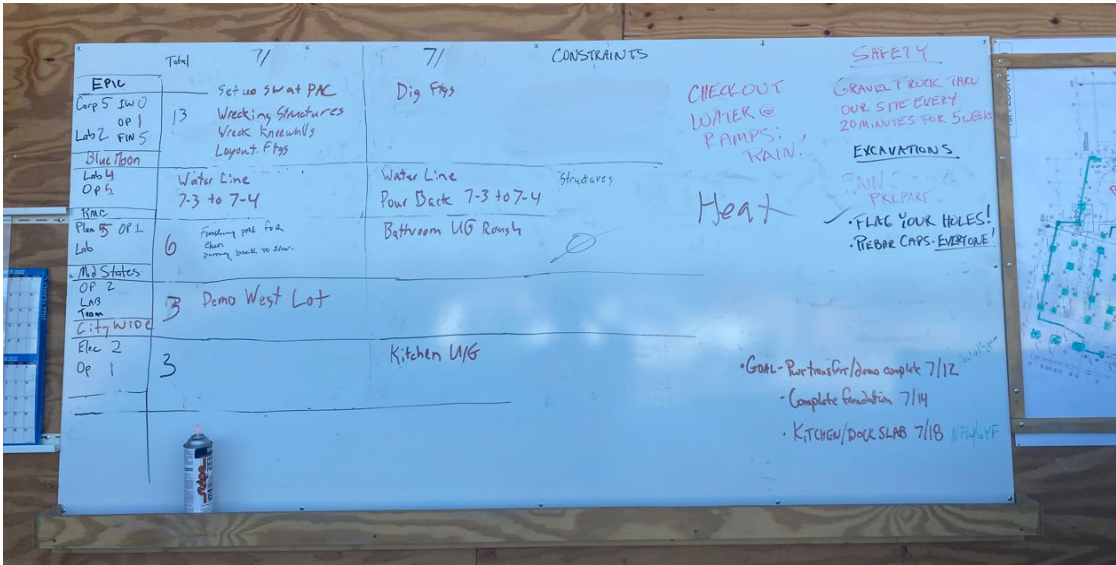 Total 7/ 7/ CONSTRAINTS SAFETY
EPIC
Carp 5 IW 0
OP 1
Lab 2 FIN 5
13
Set up SW at PAC
Wrecking Structures
Wreck Kneewalls
Layout Ftgs
Dig Ftgs
CHECKOUT
WATER @
RAMPS:
RAIN!
GRAVEL TRUCK THRU
OUR SITE EVERY
20 MINUTES FOR 5 WEEKS
EXCAVATIONS
Blue Moon
Lab 4
Op 5
Water Line
7-3 to 7-4
Water Line
Pour Back 7-3 to 7-4
Structures
Heat
PREPARE
• FLAG YOUR HOLES!
• REBAR CAPS - EVERYONE!
RMC
Plum 5 OP 1
Lab
6
Bathroom UG Rough
Mid States
OP 2
LAB
Team
3
Demo West Lot
City WIDE
Elec 2
Op 1
3
Kitchen U/G
• GOAL - Pwr transfer/demo complete 7/12
- Complete foundation 7/14
• KITCHEN/DOCK SLAB 7/18